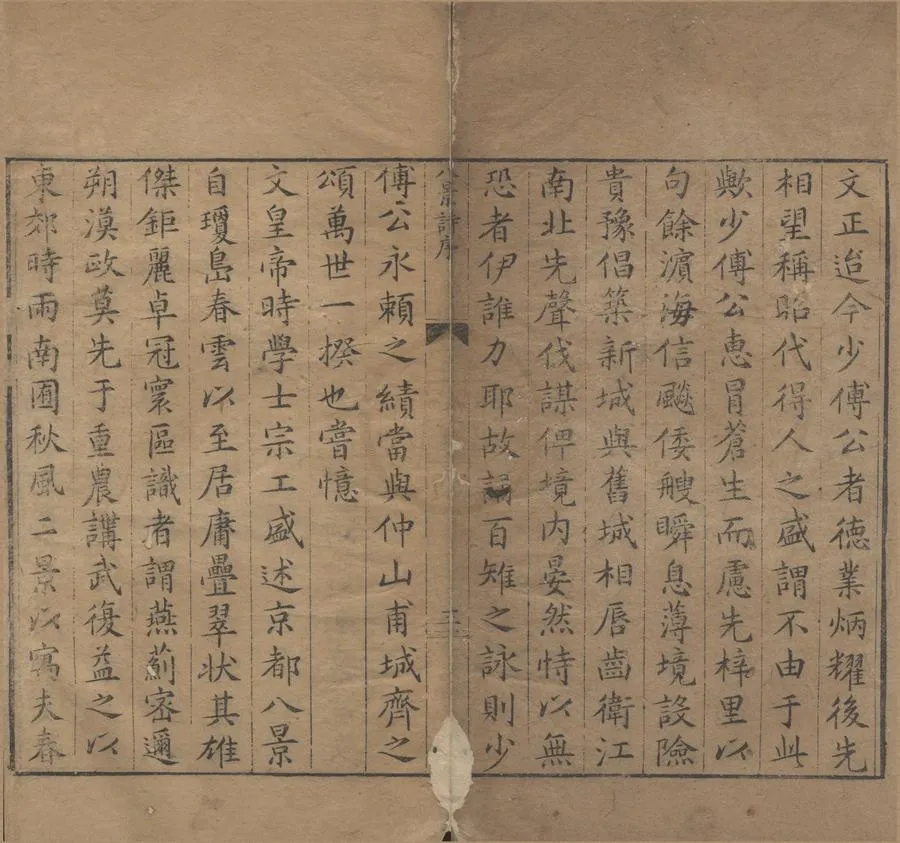 文正迨今少傅公者德業炳耀後先
相望稱昭代得人之盛謂不由于此
歟少傅公惠冐蒼生而慮先梓里以
句餘濵海信颷倭艘瞬息薄境設險
貴豫倡築新城與舊城相唇齒衛江
南北先聲伐謀俾境内晏然恃以無
恐者伊誰力耶故誦百雉之詠則少
八景詩序
三
傅公永頼之績當與仲山甫城齊之
頌萬世一揆也嘗憶
文皇帝時學士宗工盛述京都八景
自瓊島春雲以至居庸疊翠状其雄
傑鉅麗卓冠寰區識者謂燕薊密邇
朔漠政莫先于重農講武復益之以
東郊時雨南囿秋風二景以寓夫春